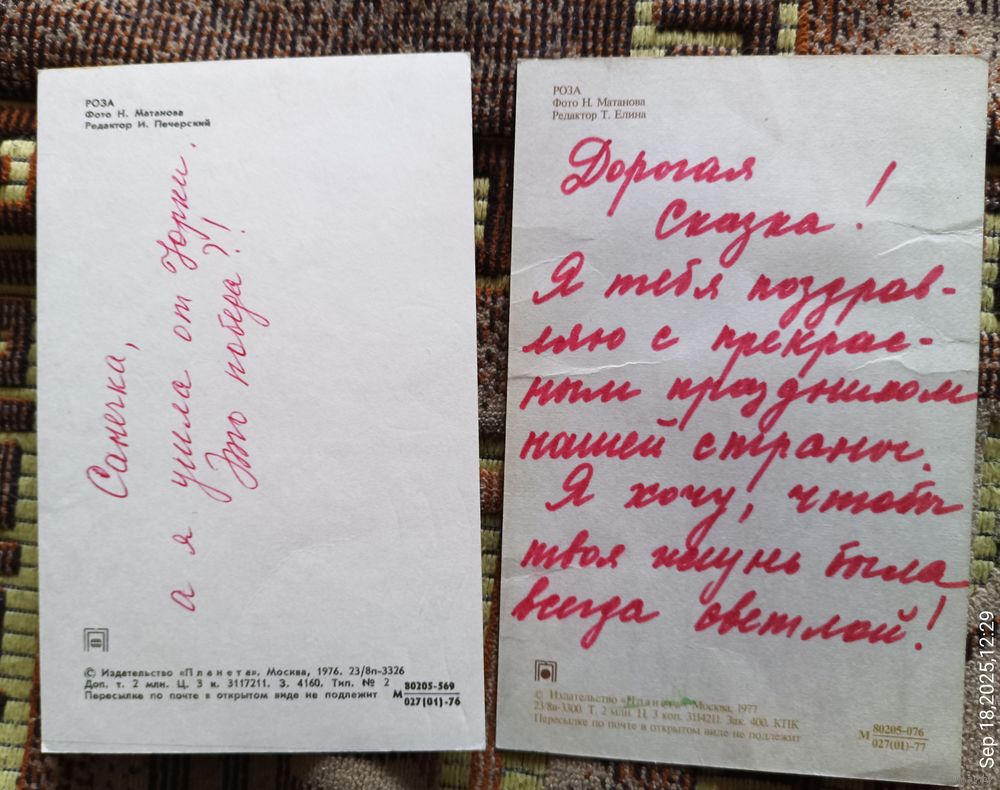 РОЗА
Фото Н. Матанова
Редактор И. Печерский
Санечка,
а я ушла от Юрки.
Это победа?!
© Издательство «Планета», Москва, 1976. 23/8п-3326
Доп. т. 2 млн. Ц. 3 к. 3117211. З. 4160. Тип. № 2
Пересылке по почте в открытом виде не подлежит
М 80205-569
027(01)-76
РОЗА
Фото Н. Матанова
Редактор Т. Елина
Дорогая
Сказка!
Я тебя поздрав-
ляю с прекрас-
ным праздником
нашей страны.
Я хочу, чтобы
твоя жизнь была
всегда светлой!
© Издательство «Планета» Москва, 1977
23/8в-3300. Т. 2 млн. Ц. 3 коп. 3114211. Зак. 400. КПК
Пересылке по почте в открытом виде не подлежит
М 80205-076
027(01)-77
Sep 18,2025,12:29